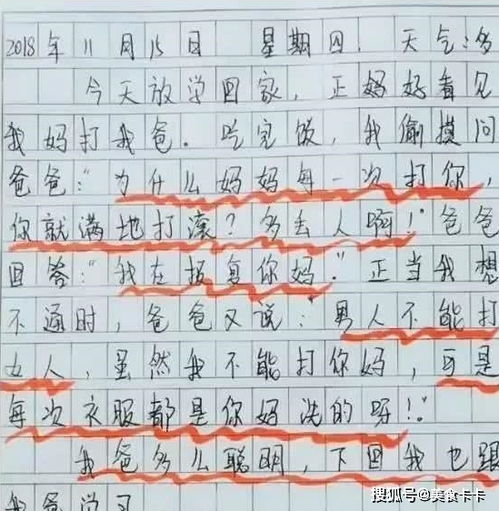 2018年11月15日 星期四. 天气:多
今天放学回家,正妈好看见
我妈打我爸。吃完饭,我偷摸问
爸爸:"为什么妈妈每一次打你,
你就满地打滚?多丢人啊!"爸爸
回答:"我在报复你妈。"正当我想
不通时,爸爸又说:男人不能打
女人,虽然我不能打你妈,可是
每次衣服都是你妈洗的呀!"
我爸多么聪明,下回我也跟
我爸学习
搜狐号@美食卡卡